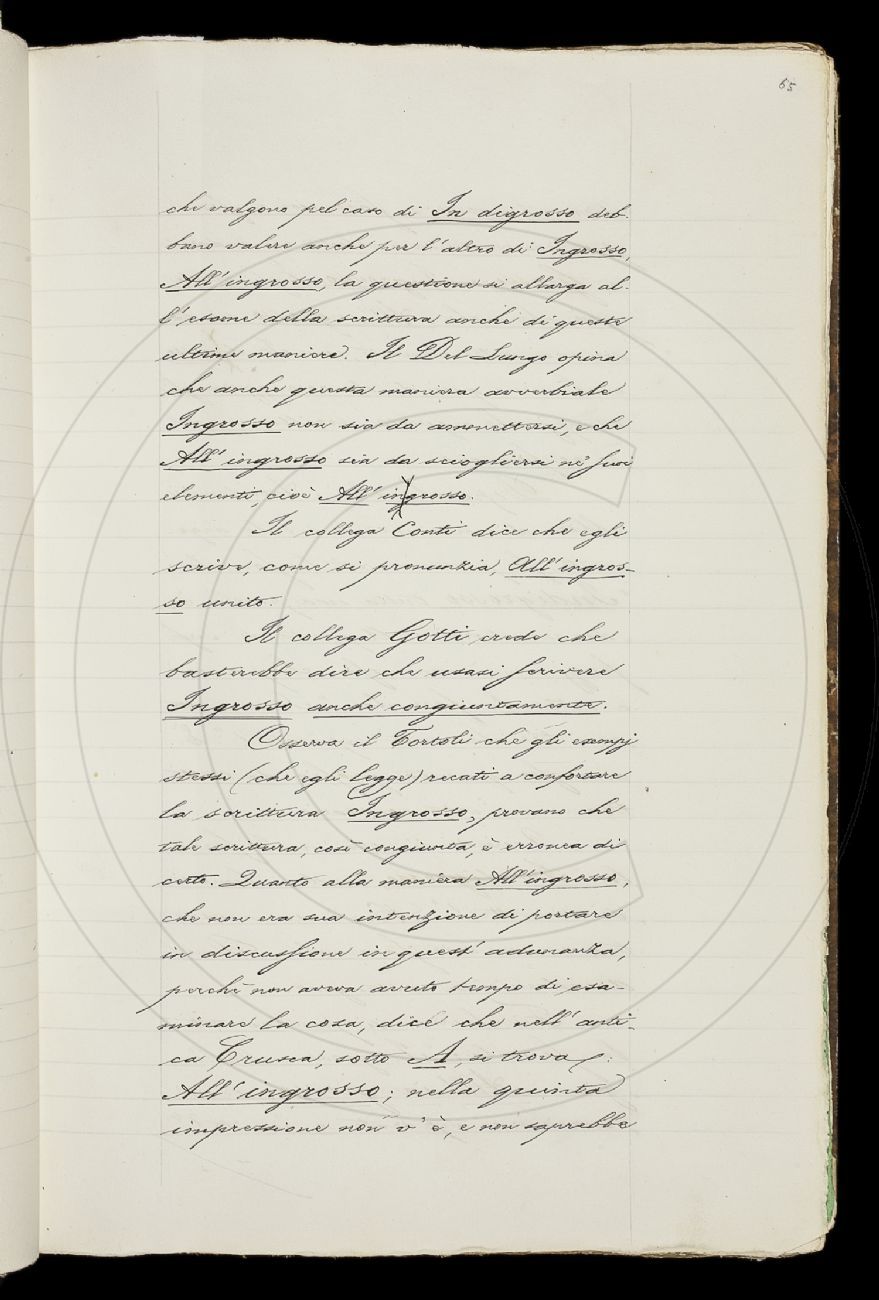 65
che valgono pel caso di In digrosso deb-
bano valere anche per l'altro di Ingrosso,
All'ingrosso, la questione si allarga al-
l'esame della scrittura anche di queste
ultime maniere. Il Del Lungo opina
che anche questa maniera avverbiale
Ingrosso non sia da ammettersi, e che
All'ingrosso sia da sciogliersi ne' suoi
elementi, cioè All' in grosso.
Il collega Conti dice che egli
scrive, come si pronunzia, All'ingros-
so unito.
Il collega Gotti crede che
basterebbe dire che usasi scrivere
Ingrosso anche congiuntamente.
Osserva il Tortoli che gli esempj
stessi (che egli legge) recati a confortare
la scrittura Ingrosso, provano che
tale scrittura, così congiunta, è erronea di
certo. Quanto alla maniera All'ingrosso,
che non era sua intenzione di portare
in discussione in quest'adunanza,
perchè non aveva avuto tempo di esa-
minare la cosa, dice che nell'anti-
ca Crusca, sotto A, si trova
All'ingrosso; nella quinta
impressione non v'è, e non saprebbe